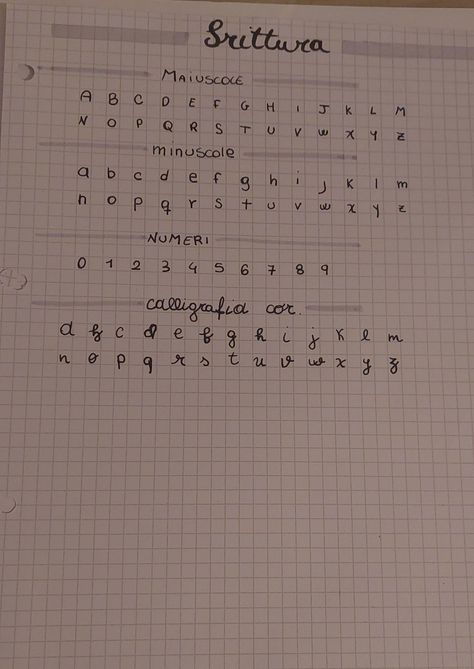 Srittura
MAIUSCOLE
A B C D E F G H I J K L M
N O P Q R S T U V W X Y Z
minuscole
a b c d e f g h i j k l m
n o p q r s t u v w x y z
NUMERI
0 1 2 3 4 5 6 7 8 9
calligrafia cor.
a b c d e f g h i j k l m
n o p q r s t u v w x y z